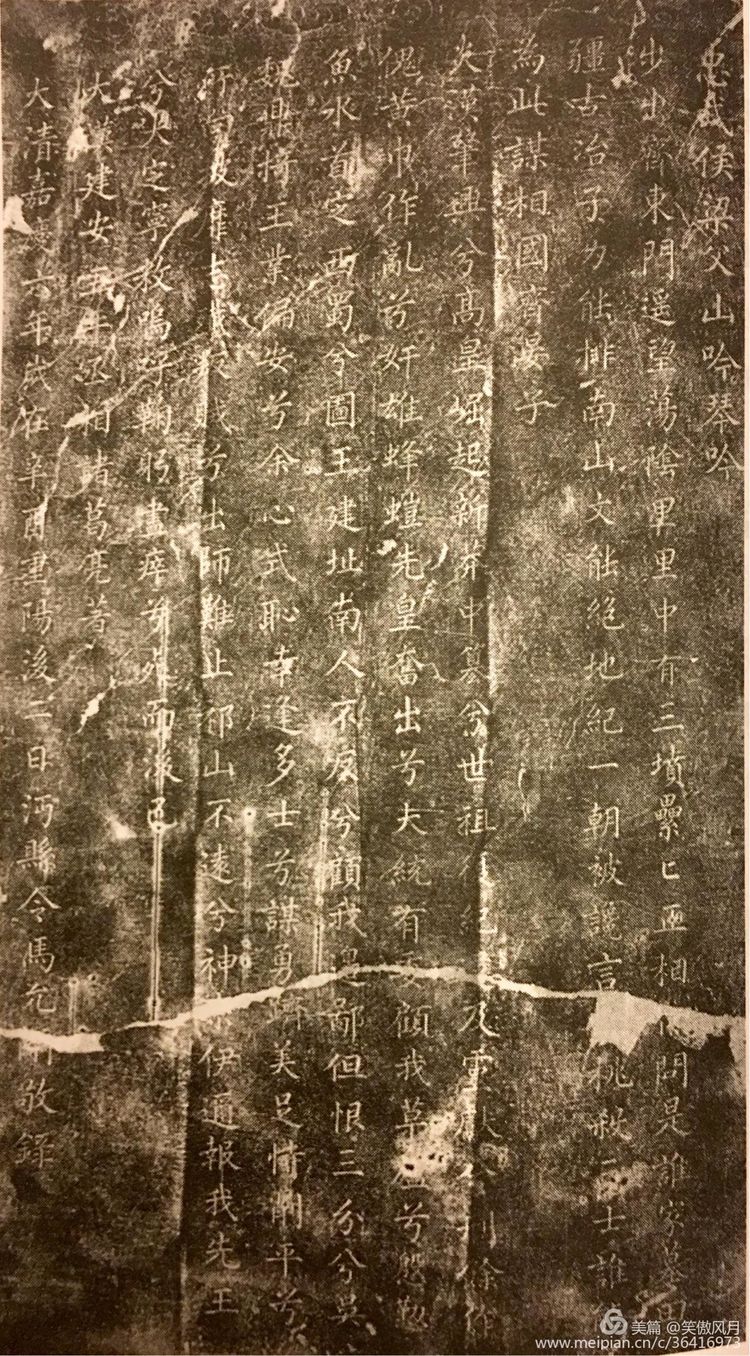 忠武侯梁父山吟琴吟
步出齊東門遥望蕩陰里里中有三墳纍匕正相 問是誰家墓田
疆古冶子力能排南山文能絕地紀一朝被讒言 桃殺 士誰
為此謀相國齊晏子
大漢肇興兮高皇崛起新莽中篡兮世祖 絕 及靈獻
傀黃巾作亂兮奸雄蜂螘先皇奮出兮大統有 顧我草廬兮
魚水首定西蜀兮圖王建址南人不反兮顧我 鄙但恨三分兮吳
魏鼎持王業偏安兮余心式恥幸逢多士兮謀勇 美足恃削平兮
出師難止祁山不遠兮神 伊通報我先王
兮 定寧 嗚呼鞠躬盡瘁兮死而後已
大漢建安 年丞相諸葛亮著
大清嘉慶六年歲在辛酉重陽後二日沔縣令馬允 敬錄
美篇 @笑傲风月
www.meipian.cn/c/36416973